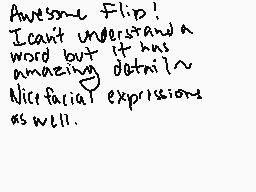 Awesome Flip!
I can't understand a
word but it has
amazing detail~
Nice facial expressions
as well.